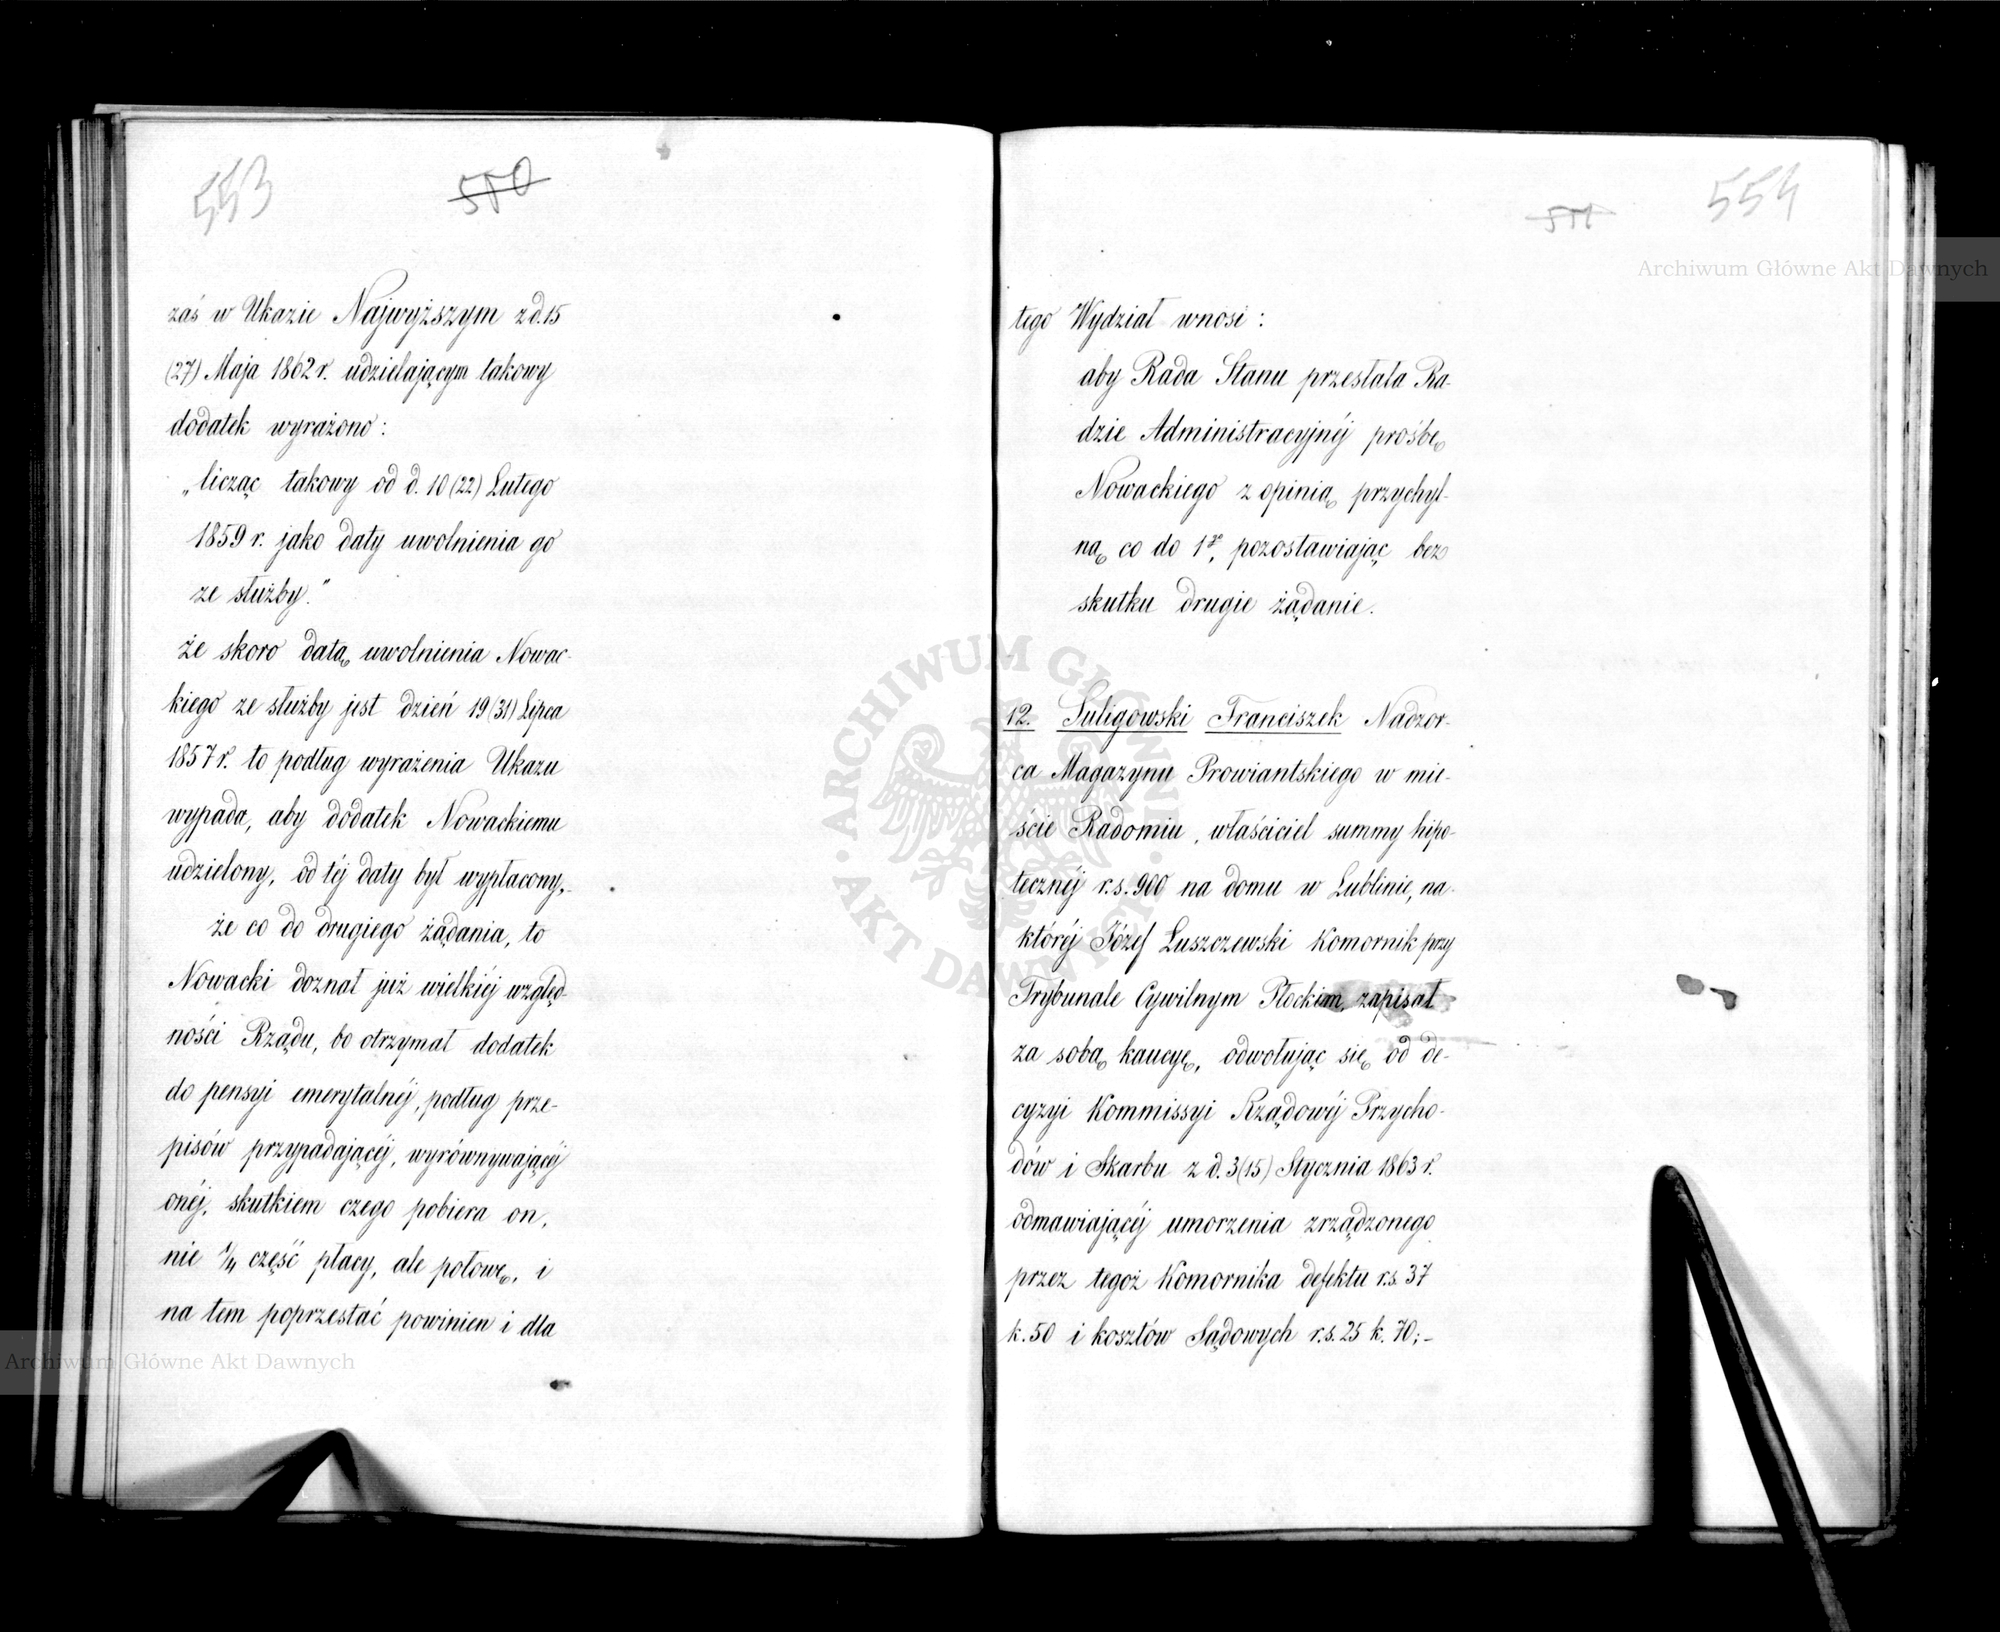 553
550
zaś w Ukazie Najwyższym z d. 15
(27) Maja 1862 r. udzielającym takowy
dodatek wyrażono:
„licząc takowy od d. 10 (22) Lutego
1859 r. jako daty uwolnienia go
ze służby."
że skoro datą uwolnienia Nowac-
kiego ze służby jest dzień 19 (31) Lipca
1857 r. to podług wyrażenia Ukazu
wypada, aby dodatek Nowackiemu
udzielony, od téj daty był wypłacony,
że co do drugiego żądania, to
Nowacki doznał już wielkiéj względ-
ności Rządu, bo otrzymał dodatek
do pensyi emerytalnéj, podług prze-
pisów przypadającéj, wyrównywającéj
onéj, skutkiem czego pobiera on,
nie 1/4 część płacy, ale połowę, i
na tem poprzestać powinien i dla
554
551
tego Wydział wnosi:
aby Rada Stanu przesłała Ra-
dzie Administracyjnéj prośbę
Nowackiego z opinią przychyl-
ną co do 1º, pozostawiając bez
skutku drugie żądanie.
12. Suligowski Franciszek Nadzor-
ca Magazynu Prowiantskiego w mie-
ście Radomiu, właściciel summy hipo-
tecznéj r.s. 900 na domu w Lublinie, na
któréj Józef Luszczewski Komornik przy
Trybunale Cywilnym Płockim, zapisał
za sobą kaucyę, odwołując się od de-
cyzyi Kommissyi Rządowéj Przycho-
dów i Skarbu z d. 3 (15) Stycznia 1863 r.
odmawiającéj umorzenia zrządzonego
przez tegoż Komornika defektu r.s. 37
k. 50 i kosztów Sądowych r.s. 25 k. 70;–
Archiwum Główne Akt Dawnych
ARCHIWUM GŁÓWNE AKT DAWNYCH
Archiwum Główne Akt Dawnych